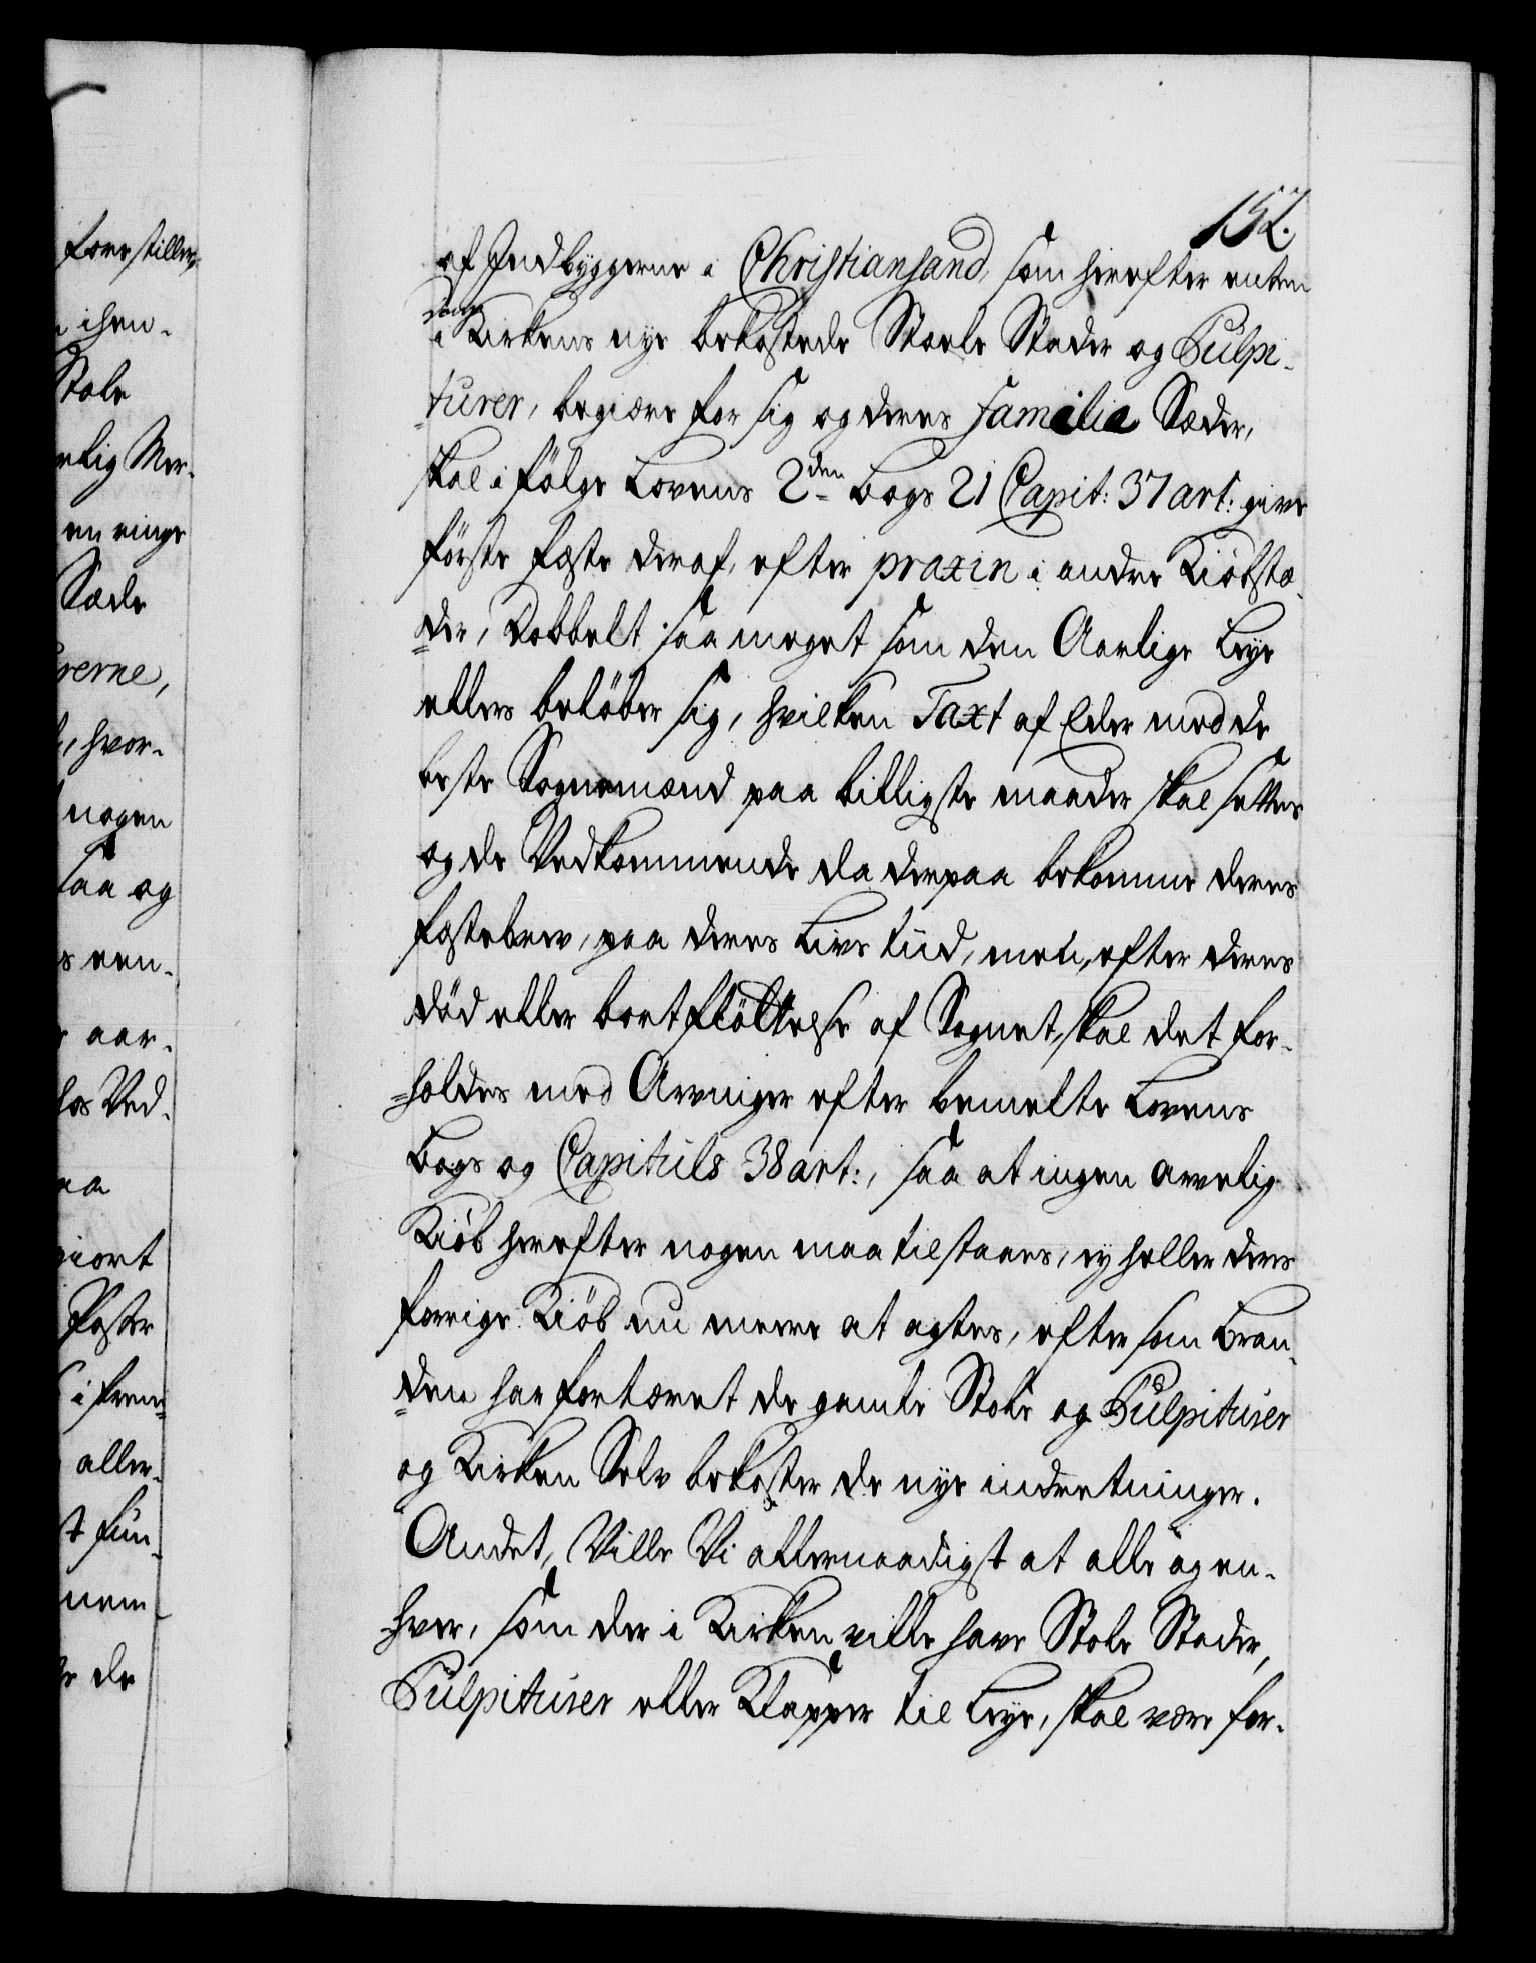 152.
af Indbyggerne i Christiansand, som herefter enten
i Kirkens nye bekostede Stoele Stader og Pulpi-
turer, begiære for sig og deres familie Sæder,
skal i følge Lovens 2den Bogs 21 Capit: 37 art: give
første fæste deraf, efter praxin i andre Kiøbstæ-
der, Dobbelt saa meget som den Aarlige Leye
ellers beløber sig, hvilken Taxt af Eder med de
beste Sognemænd paa billigste maader skal settes
og de Vedkommende da derpaa bekomme deres
fæstebrev, paa deres Livs tiid, men, efter deres
død eller bortflöttelse af Sognet, skal det for-
holdes med Arvinger efter bemelte Lovens
Bogs og Capituls 38 art:, saa at ingen arvelig
Kiøb herefter nogen maa tilstaaes, ey heller deres
forrige Kiøb nu meere at agtes, efter som Bran-
den har fortæret de gamle Stole og Pulpiturer
og Kirken Selv bekoster de nye indretninger.
Andet, Ville Vi allernaadigst at alle og en-
hver, som der i Kirken ville have Stole Stader,
Pulpiturer eller Klapper til Leye, skal være for-
forestiller
ihen-
Stole
erlig Mer-
en ringe
Sæde
rerne,
, hvor-
nogen
saa og
een-
aar-
hos Ved-
giort
Poster
i frem-
aller-
t fun-
nem-
de